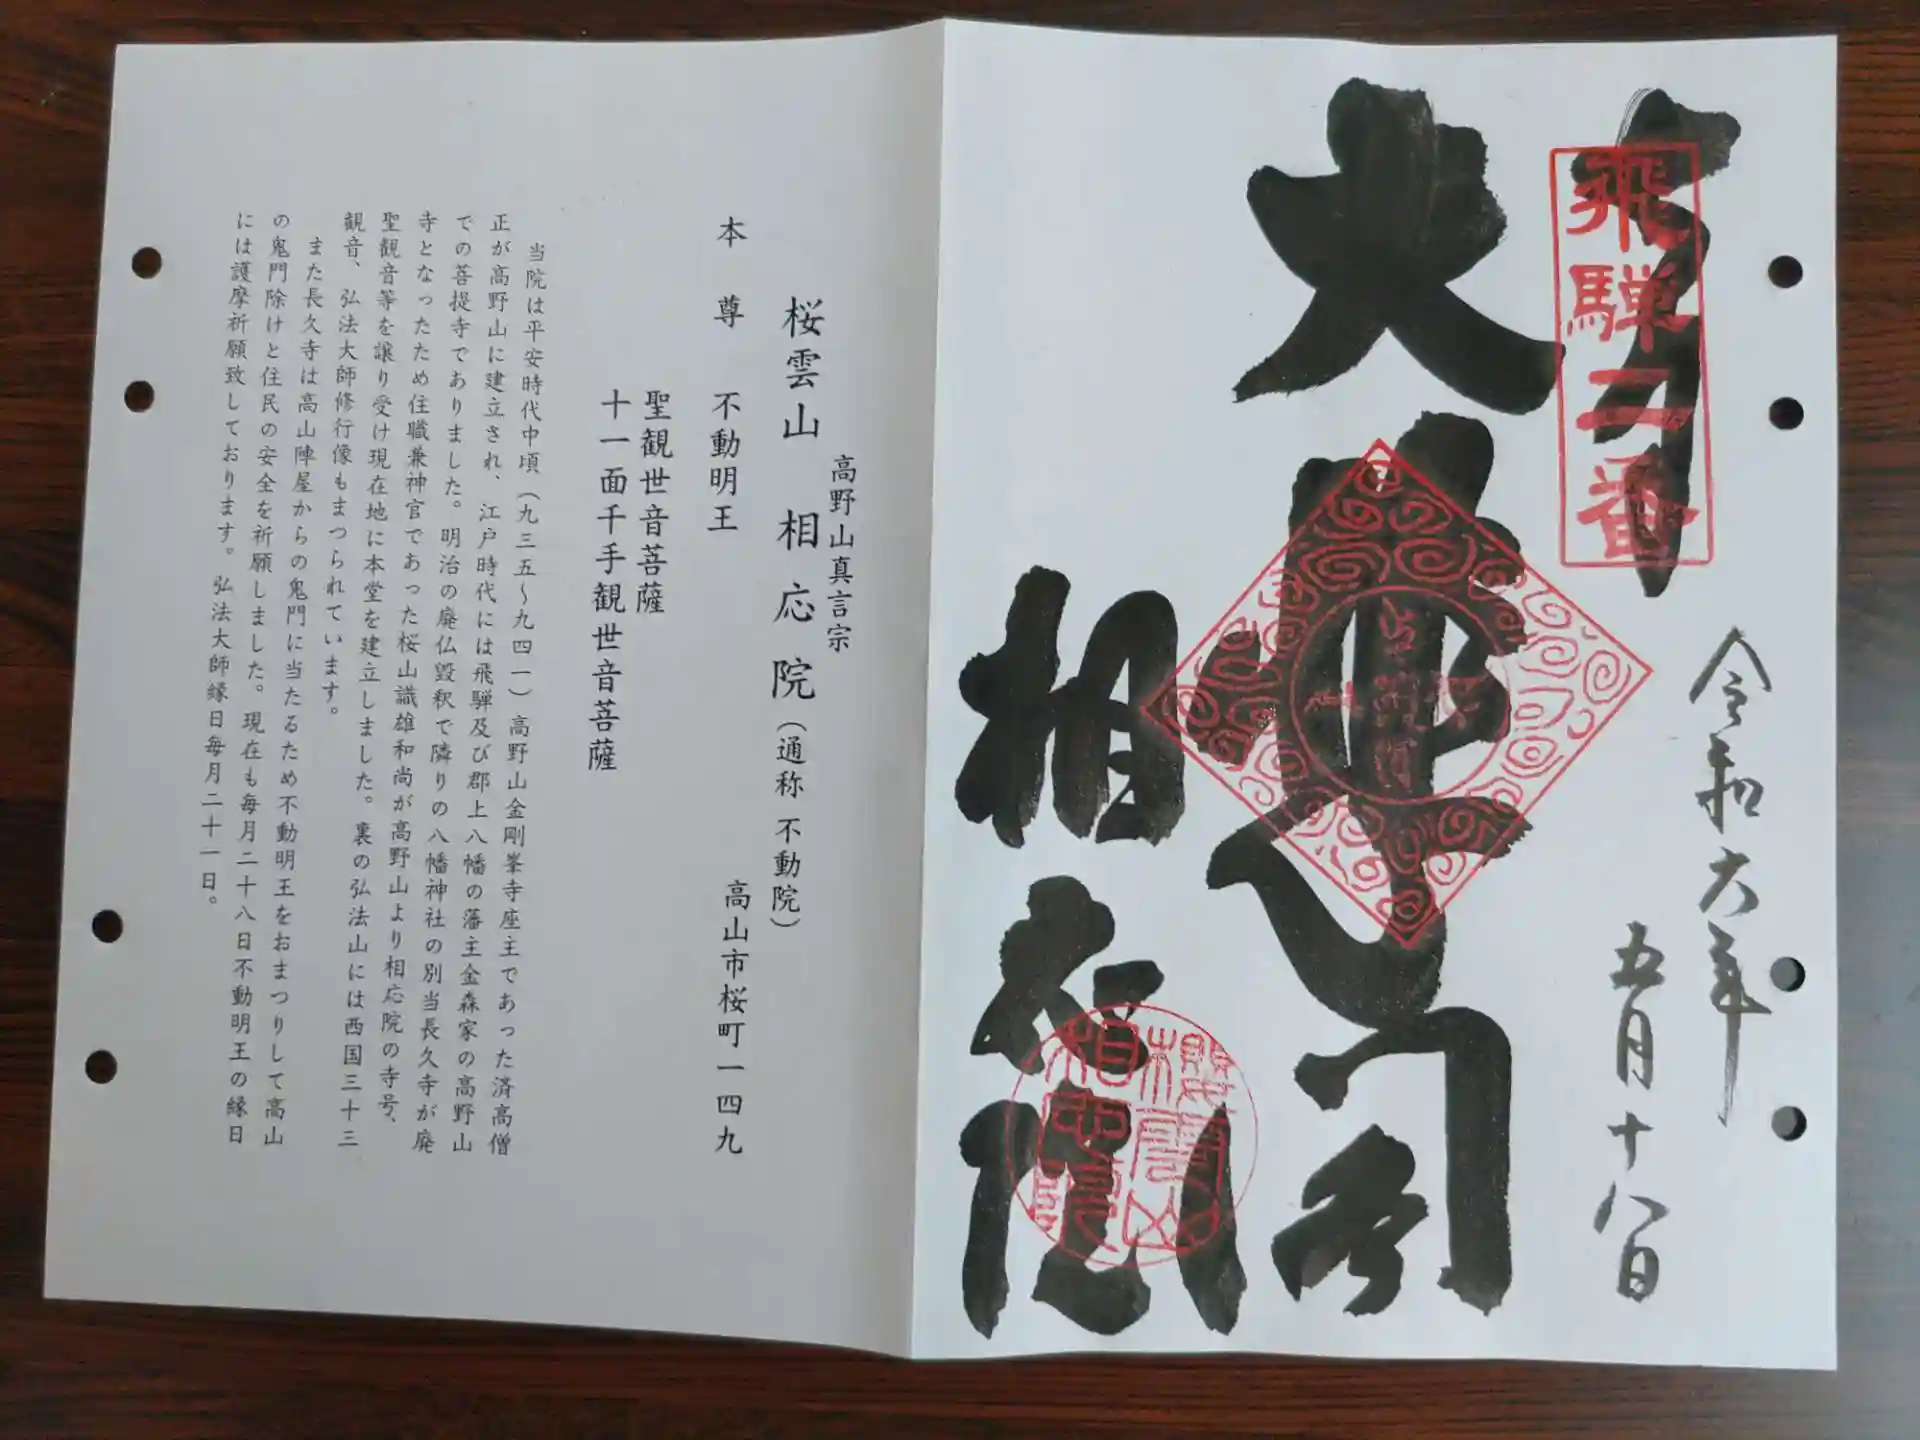 奉拝
飛騨二番
令和六年
五月十八日
大悲閣
相応院
櫻雲山
相應院
高野山真言宗
桜雲山 相応院(通称 不動院)
高山市桜町一四九
本尊 不動明王
聖観世音菩薩
十一面千手観世音菩薩
当院は平安時代中頃(九三五〜九四一)高野山金剛峯寺座主であった済高僧
正が高野山に建立され、江戸時代には飛騨及び郡上八幡の藩主金森家の高野山
での菩提寺でありました。明治の廃仏毀釈で隣りの八幡神社の別当長久寺が廃
寺となったため住職兼神官であった桜山識雄和尚が高野山より相応院の寺号、
聖観音等を譲り受け現在地に本堂を建立しました。裏の弘法山には西国三十三
観音、弘法大師修行像もまつられています。
また長久寺は高山陣屋からの鬼門に当たるため不動明王をおまつりして高山
の鬼門除けと住民の安全を祈願しました。現在も毎月二十八日不動明王の縁日
には護摩祈願致しております。弘法大師縁日毎月二十一日。